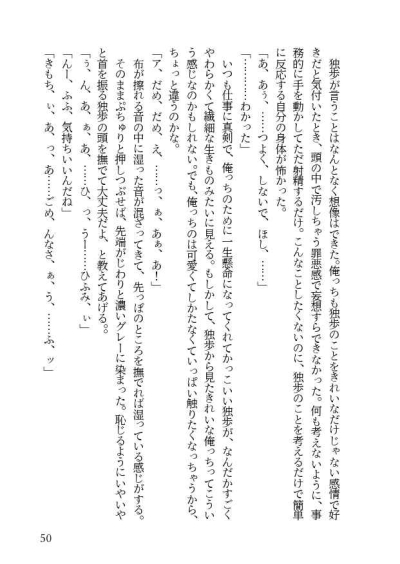 独歩が言うことはなんとなく想像はできた。俺っちも独歩のことをきれいなだけじゃない感情で好
きだと気付いたとき、頭の中で汚しちゃう罪悪感で妄想すらできなかった。何も考えないように、事
務的に手を動かしてただ射精するだけ。こんなことしたくないのに、独歩のことを考えるだけで簡単
に反応する自分の身体が怖かった。
「あ、あぅ、……つよく、しないで、ほし、……」
「………わかった」
　いつも仕事に真剣で、俺っちのために一生懸命になってくれてかっこいい独歩が、なんだかすごく
やわらかくて繊細な生きものみたいに見える。もしかして、独歩から見たきれいな俺っちってこうい
う感じなのかもしれない。でも、俺っちのは可愛くてしかたなくていっぱい触りたくなっちゃうから、
ちょっと違うのかな。
「ア、だめ、だめ、え、……っ、ぁ、あぁ、あ！」
　布が擦れる音の中に湿った音が混ざってきて、先っぽのところを撫でれば湿っている感じがする。
そのままぷちゅりと押しつぶせば、先端がじわりと濃いグレーに染まった。恥じるようにいやいや
と首を振る独歩の頭を撫でて大丈夫だよ、と教えてあげる。。
「ぅ、ん、あ、ぁ、あ、……ひ、っ、うー……ひふみ、ぃ」
「んー、ふふ、気持ちいいんだね」
「きもち、ぃ、あ、っ、あ、……ごめ、んなさ、ぁ、う、……ふ、ッ」
50